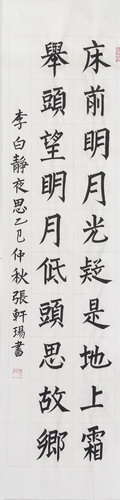 床前明月光疑是地上霜
舉頭望明月低頭思故鄉
李白靜夜思乙巳仲秋張軒瑒書